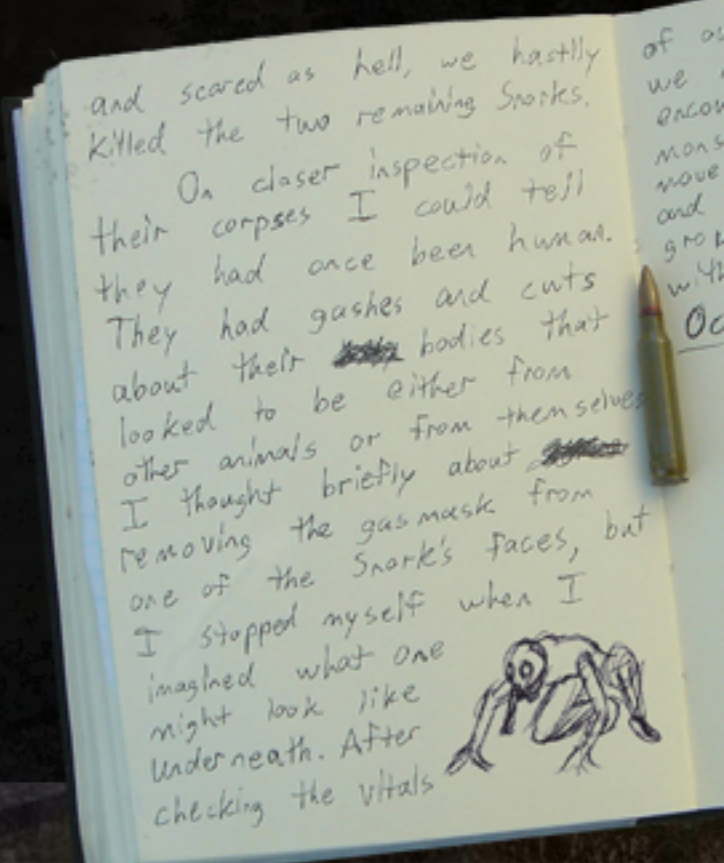 and scared as hell, we hastlly
killed the two remaining Snorks.
On closer inspection of
their corpses I could tell
they had once been human.
They had gashes and cuts
about their bodies that
looked to be either from
other animals or from themselves
I thought briefly about
removing the gasmask from
one of the Snork's faces, but
I stopped myself when I
imagined what one
might look like
underneath. After
checking the vitals
of
we
and
with